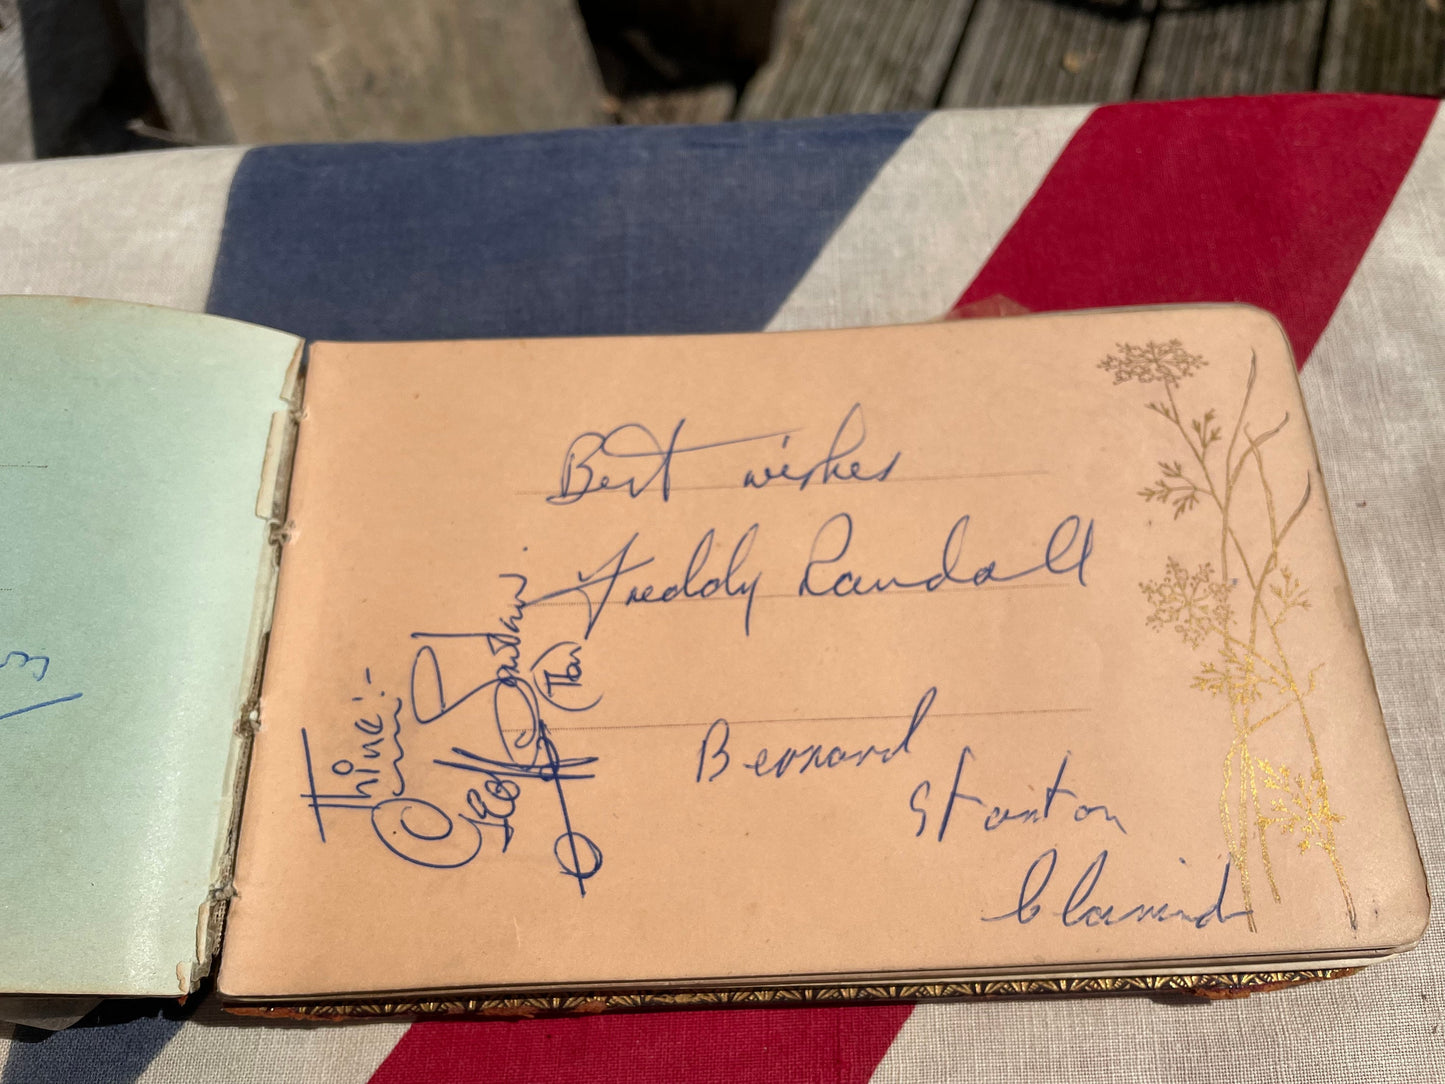 Best wishes
Freddy Randall
Bernard
Stanton
Clarinet
Thine:-
Geoff
(Tbn)